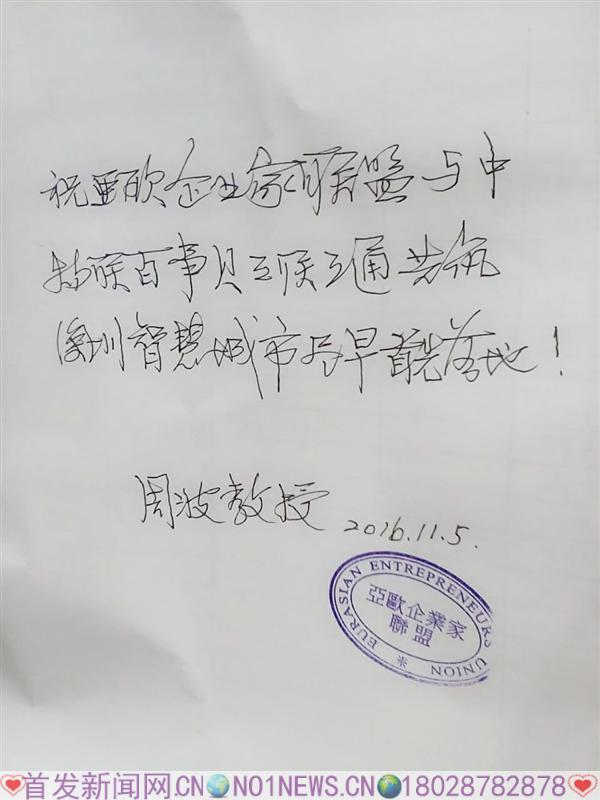 祝亚欧企业家联盟与中
括联百事贝互联互通共筑
深圳智慧城市尽早首先落地!
周波教授 2016.11.5.
EURASIAN ENTREPRENEURS UNION
亞歐企業家
聯盟
首发新闻网.CN NO1NEWS.CN 18028782878